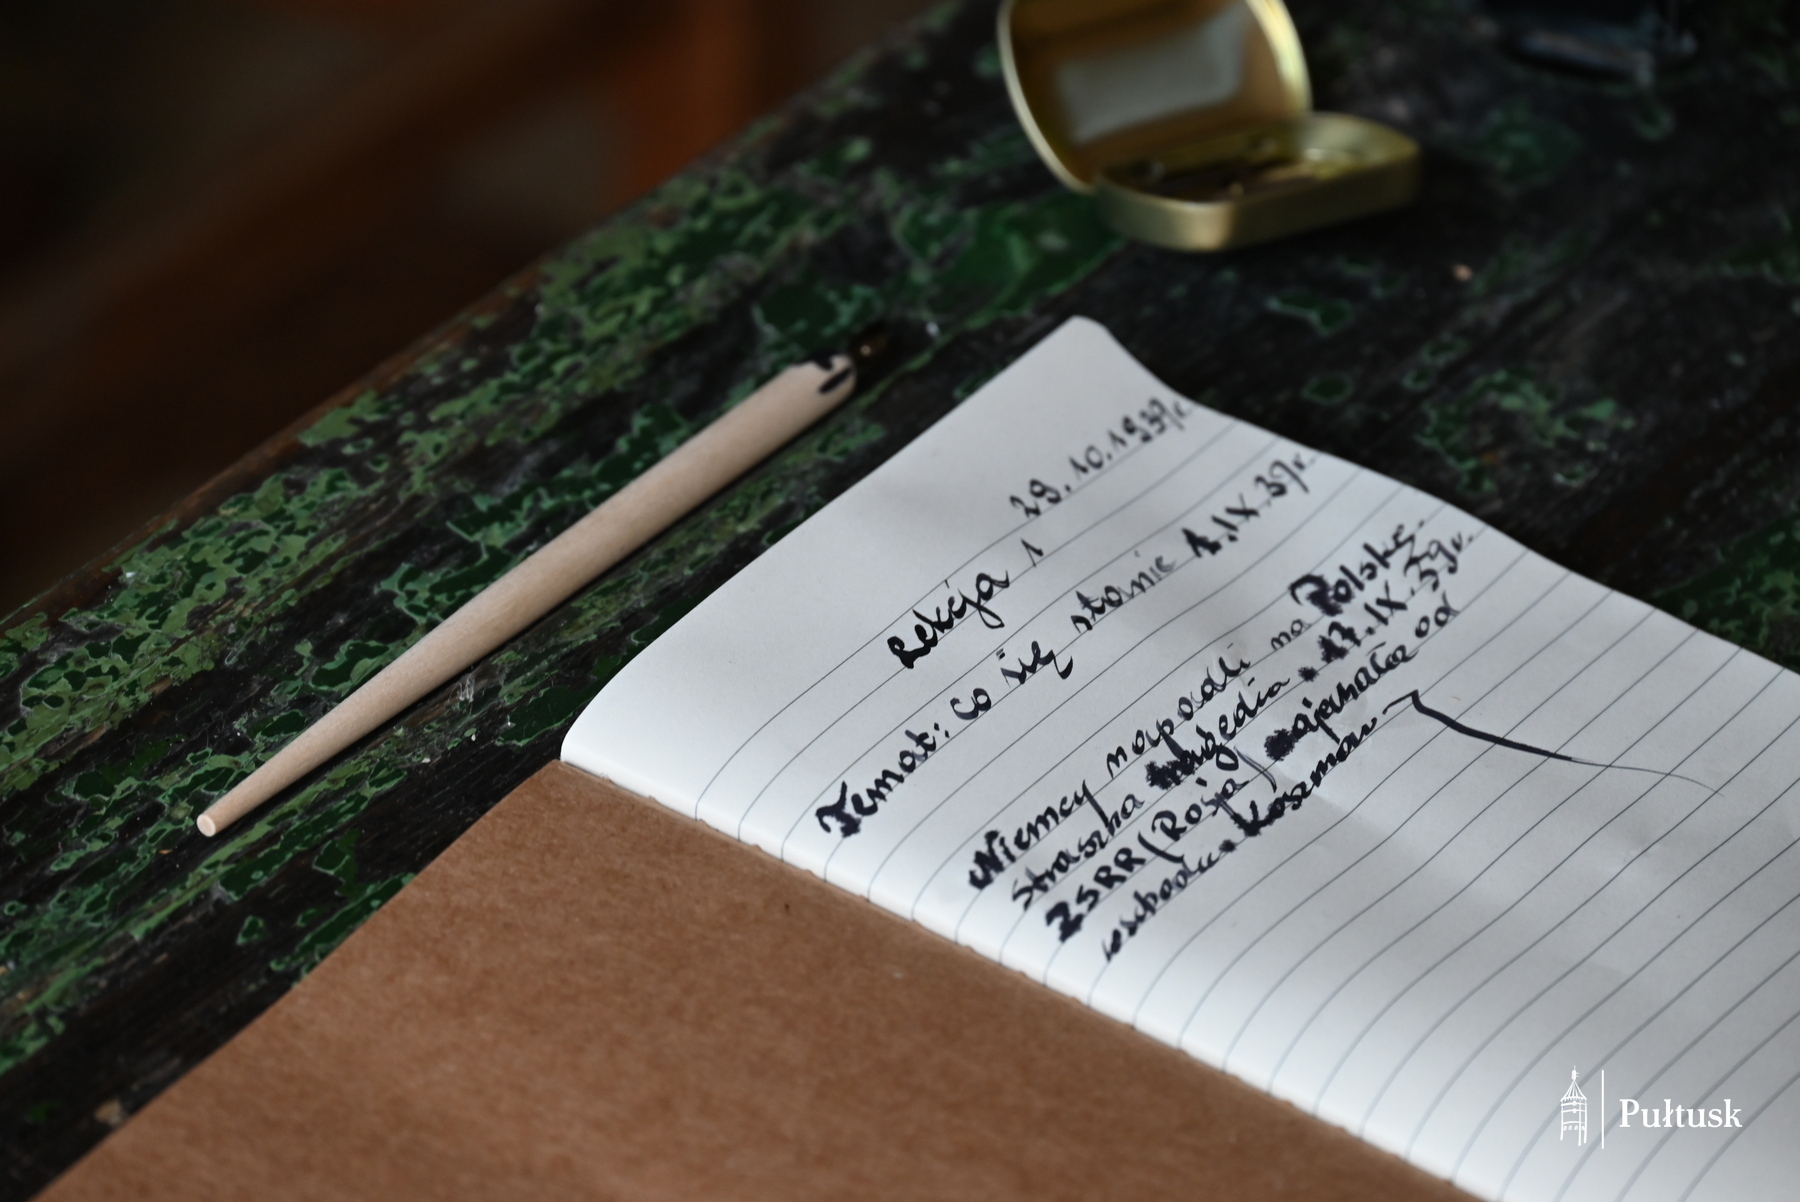 29.10.1939r.
Lekcja 1
Temat: Co się stanie 1.IX.39r.
Niemcy napadli na Polskę.
Straszna tragedia. 17.IX.39r.
ZSRR (Rosja) najechała od
wschodu. Koszmar.
Pułtusk